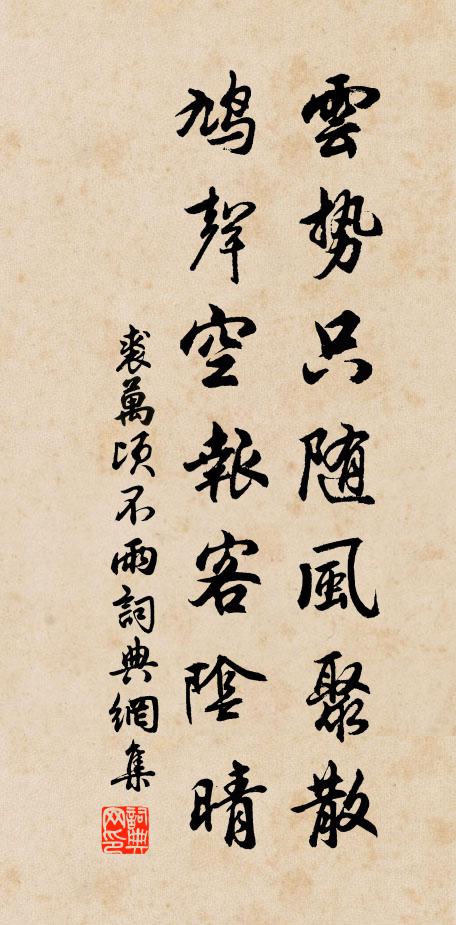 雲勢只随風聚散
鳩聲空報客陰晴
裘萬頃不雨詞典網集
詞典
网印